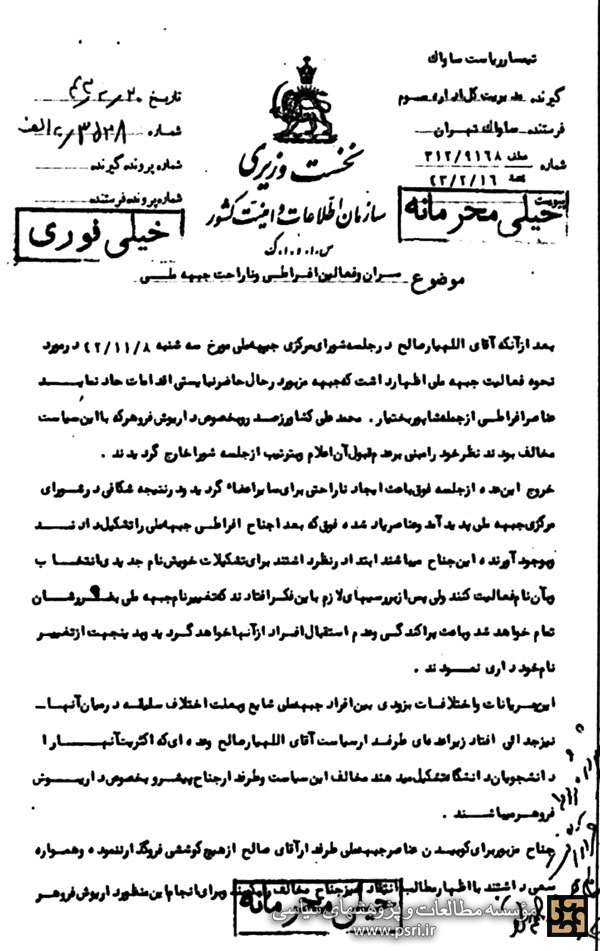 تیمسار ریاست ساواک
گیرنده مدیریت کل اداره سوم
فرستنده ساواک تهران
شماره ۳۱۲/۹۱۶۸
۴۳/۲/۱۶
پیوست
خیلی محرمانه
نخست وزیری
سازمان اطلاعات و امنیت کشور
س.ا.و.ا.ک
تاریخ ۴۳/۲/۲۰
شماره
شماره پرونده گیرنده
شماره پرونده فرستنده
خیلی فوری
موضوع سران و فعالین افراطی و ناراحت جبهه ملی
بعد از آنکه آقای اللهیار صالح در جلسه شورای مرکزی جبهه ملی مورخ سه شنبه ۴۲/۱۱/۸ در مورد
نحوه فعالیت جبهه ملی اظهار داشت که جبهه مزبور در حال حاضر نبایستی اقدامات حاد نماید
عناصر افراطی از جمله شاپور بختیار . محمد علی کشاورز صدر و بخصوص داریوش فروهر که با این سیاست
مخالف بودند نظر خود را مبنی بر عدم قبول آن اعلام و بترتیب از جلسه شورا خارج گردیدند .
خروج این عده از جلسه فوق باعث ایجاد ناراحتی برای سایر اعضاء گردید و در نتیجه شکافی در شورای
مرکزی جبهه ملی پدید آمد و عناصر یاد شده فوق که بعدا جناح افراطی جبهه ملی را تشکیل دادند
و بوجود آورنده این جناح میباشند ابتدا در نظر داشتند برای تشکیلات خویش نام جدیدی انتخاب
و بآن نام فعالیت کنند ولی پس از بررسیهای لازم باین فکر افتادند که تغییر نام جبهه ملی بضررشان
تمام خواهد شد و باعث پراکندگی و عدم استقبال افراد از آنها خواهد گردید و بدینجهت از تغییر
نام خودداری نمودند .
این جریانات و اختلافات بزودی بین افراد جبهه ملی شایع و بعلت اختلاف سلیقه در میان آنها
نیز جدائی افتاد زیرا عده‌ای طرفدار سیاست آقای اللهیار صالح و عده ای که اکثریت آنها را
دانشجویان دانشگاه تشکیل میدهند مخالف این سیاست و طرفدار جناح پیشرو بخصوص داریوش
فروهر میباشند .
جناح مزبور برای کوبیدن عناصر جبهه ملی طرفدار آقای صالح از هیچ کوششی فروگذار ننموده و همواره
سعی داشتند با اظهار مطالب انتقاد آمیز جناح مخالف را بکوبند و برای انجام این منظور داریوش فروهر
خیلی محرمانه
مؤسسه مطالعات و پژوهشهای سیاسی
www.psri.ir